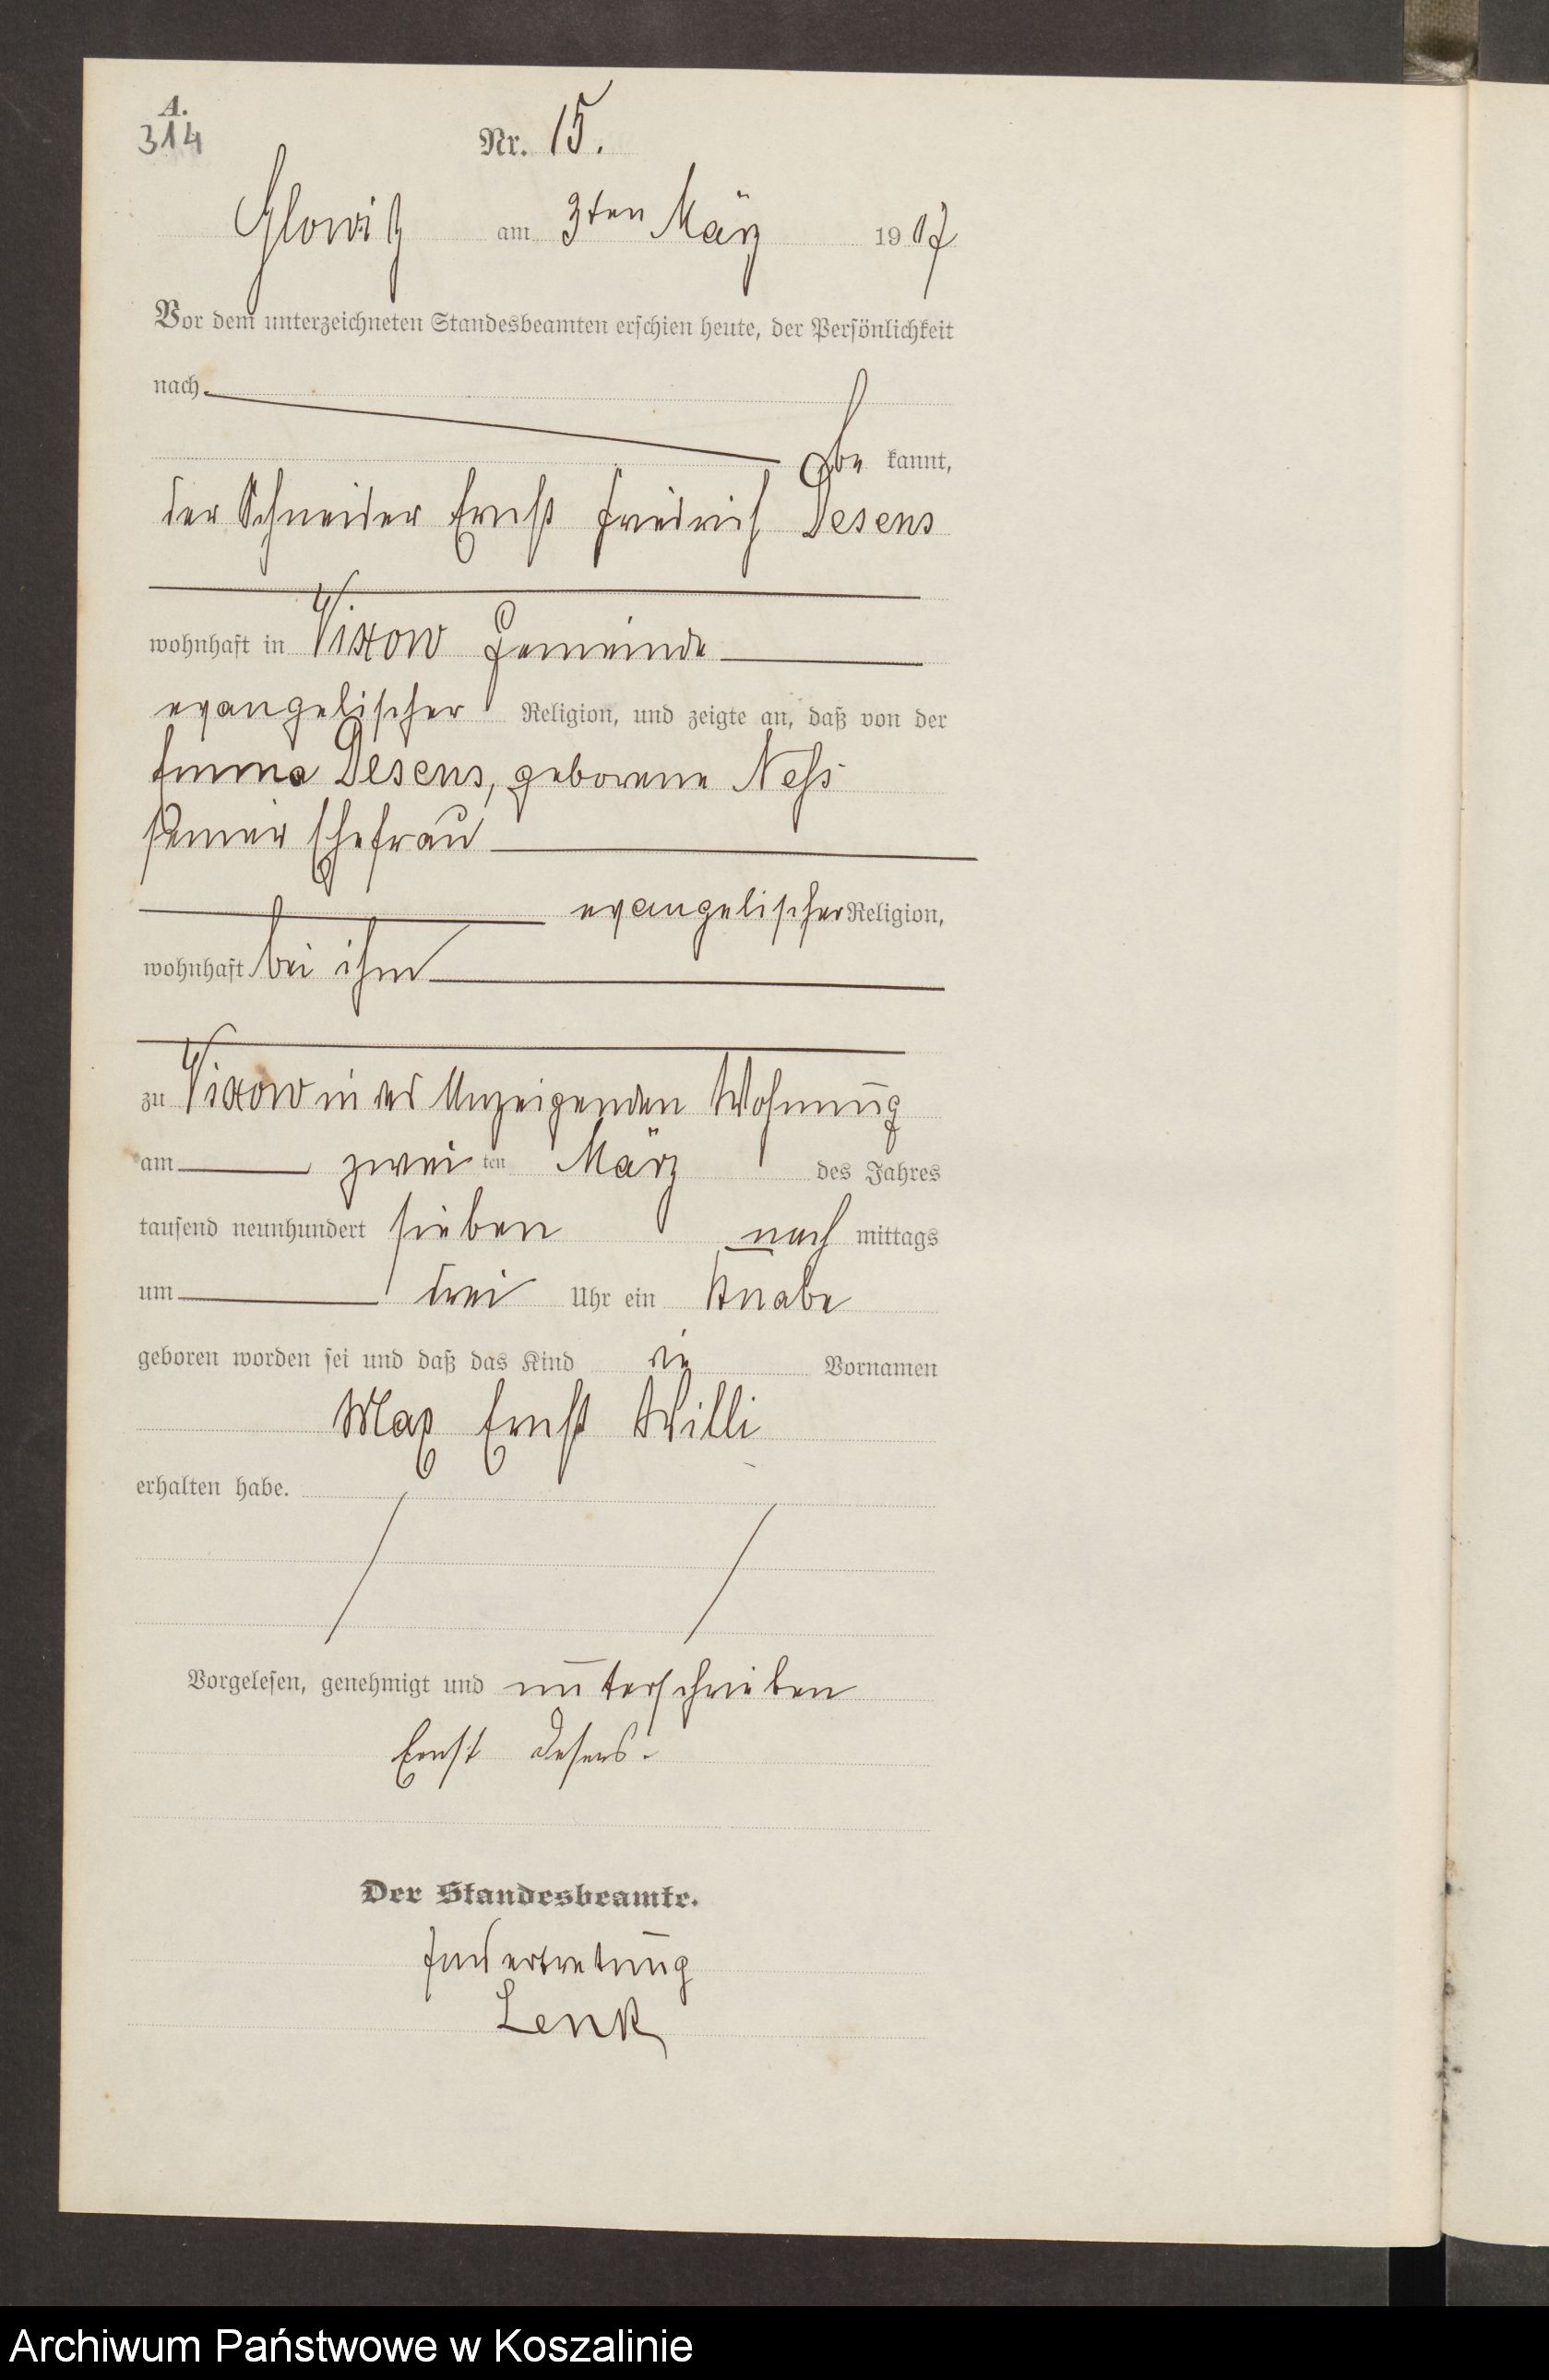 A.
314
Nr. 15.
Glowitz am 3ten März 1907
Vor dem unterzeichneten Standesbeamten erschien heute, der Persönlichkeit
nach
be kannt,
der Schneider Ernst Friedrich Desens
wohnhaft in Vixow Gemeinde
evangelischer Religion, und zeigte an, daß von der
Emma Desens, geborene Neß
seiner Ehefrau
evangelischer Religion,
wohnhaft bei ihm
zu Vixow in des Anzeigenden Wohnung
am zwei ten März des Jahres
tausend neunhundert sieben nach mittags
um drei Uhr ein Knabe
geboren worden sei und daß das Kind die Vornamen
Max Ernst Willi
erhalten habe.
Vorgelesen, genehmigt und unterschrieben
Ernst Desens.
Der Standesbeamte.
In Vertretung
Lenk
Archiwum Państwowe w Koszalinie